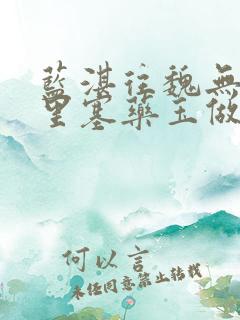 藍湛往魏無
里塞藥玉做
何以言
未經同意禁止轉載